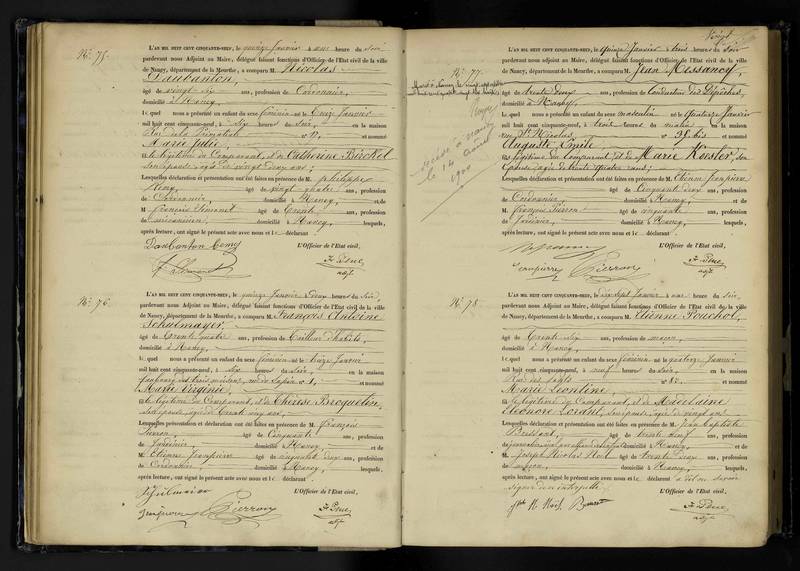 N° 75.
L'AN MIL HUIT CENT CINQUANTE-NEUF, le quinze Janvier à une heure du Soir
pardevant nous Adjoint au Maire, délégué faisant fonctions d'Officier de l'Etat civil de la ville
de Nancy, département de la Meurthe, a comparu M. Nicolas
Daubanton,
âgé de vingt six ans, profession de Cordonnier,
domicilié à Nancy,
lequel nous a présenté un enfant du sexe féminin né le treize Janvier
mil huit cent cinquante-neuf, à dix heures du soir, en la maison
et nommé
Marie Julie,
fille légitime du Comparant, et de Catherine Birckel
son épouse âgée de vingt deux ans;
Lesquelles déclaration et présentation ont été faites en présence de M. philippe
Remy, âgé de vingt quatre ans, profession
de Cordonnier, domicilié à Nancy, et de
M. François Simonet âgé de Trente ans, profession
de domicilié à Nancy, lesquels,
après lecture, ont signé le présent acte avec nous et le déclarant
Daubanton Remy L'Officier de l'Etat civil,
adj.
N° 76.
L'AN MIL HUIT CENT CINQUANTE-NEUF, le quinze Janvier à deux heures du Soir,
pardevant nous Adjoint au Maire, délégué faisant fonctions d'Officier de l'Etat civil de la ville
de Nancy, département de la Meurthe, a comparu M. François Antoine
Schulmayer,
âgé de trente quatre ans, profession de Tailleur d'habits,
domicilié à Nancy,
lequel nous a présenté un enfant du sexe féminin né le treize Janvier
mil huit cent cinquante-neuf, à six heures du soir, en la maison
faubourg des trois maisons, et nommé
Marie Virginie,
fille légitime du Comparant, et de Thérèse Broquetin,
son épouse âgée de trente cinq ans,
Lesquelles déclaration et présentation ont été faites en présence de M. françois
Pierron âgé de Cinquante ans, profession
de Jardinier, domicilié à Nancy, et de
M. Etienne Jeanpierre âgé de cinquante deux ans, profession
de Cordonnier domicilié à Nancy, lesquels,
après lecture, ont signé le présent acte avec nous et le déclarant
L'Officier de l'Etat civil,
Jeanpierre Pierron
adj.
Vingt
N° 77.
L'AN MIL HUIT CENT CINQUANTE-NEUF, le quinze Janvier à trois heures du Soir
pardevant nous Adjoint au Maire, délégué faisant fonctions d'Officier de l'Etat civil de la ville
de Nancy, département de la Meurthe, a comparu M. Jean Messancy,
âgé de trente deux ans, profession de Conducteur des Dépêches,
domicilié à Nancy,
lequel nous a présenté un enfant du sexe masculin né le quatorze Janvier
mil huit cent cinquante-neuf, à trois heures du matin en la maison
rue St Nicolas, n° 95 bis et nommé
Auguste Emile,
fils légitime du Comparant et de Marie Kesler, son
Epouse âgée de trente quatre ans;
Lesquelles déclaration et présentation ont été faites en présence de M. Etienne Jeanpierre
âgé de Cinquante deux ans, profession
de Cordonnier domicilié à Nancy, et de
M. François Pierron âgé de cinquante ans, profession
de Jardinier, domicilié à Nancy, lesquels,
après lecture, ont signé le présent acte avec nous et le déclarant
L'Officier de l'Etat civil,
Jeanpierre Pierron
adj.
Décédé à Nancy
le 14 avril
1900
N° 78.
L'AN MIL HUIT CENT CINQUANTE-NEUF, le dix sept Janvier à une heure du Soir,
pardevant nous Adjoint au Maire, délégué faisant fonctions d'Officier de l'Etat civil de la ville
de Nancy, département de la Meurthe, a comparu M. Etienne Pouchol,
âgé de Trente six ans, profession de maçon,
domicilié à Nancy,
lequel nous a présenté un enfant du sexe féminin né le quatorze Janvier
mil huit cent cinquante-neuf, à neuf heures du Soir, en la maison
et nommé
Marie Léontine,
fille légitime du Comparant, et de Madelaine
Eléonore Lorant, son épouse âgée de vingt ans
Lesquelles déclaration et présentation ont été faites en présence de M. Jean Baptiste
âgé de trente neuf ans, profession
de domicilié à Nancy, et de
M. Joseph Nicolas Noel âgé de trente deux ans, profession
de maçon, domicilié à Nancy, lesquels,
après lecture, ont signé le présent acte avec nous et le déclarant a dit ne savoir
signer de ce interpellé.
L'Officier de l'Etat civil,
adj.